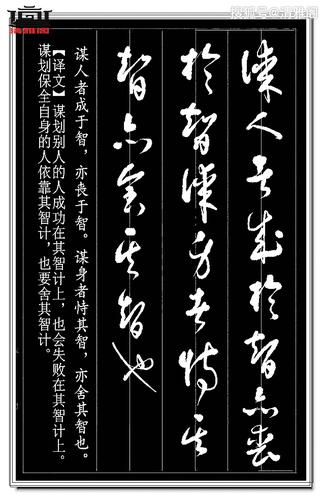 搜狐号@清雅阁
清雅阁
謀人者成於智亦喪
於智謀身者恃其
智亦舍其智也
谋人者成于智，亦丧于智。谋身者恃其智，亦舍其智也。
【译文】谋划别人的人成功在其智计上，也会失败在其智计上。
谋划保全自身的人依靠其智计，也要舍其智计。